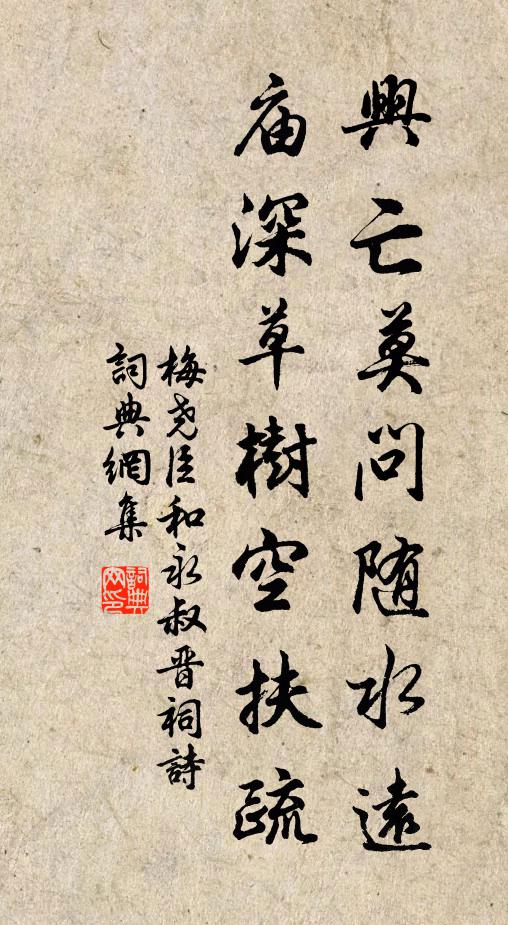 興亡莫问随水遠
庙深草樹空扶疏
梅尧臣和永叔晋祠詩
詞典網集
詞典网印